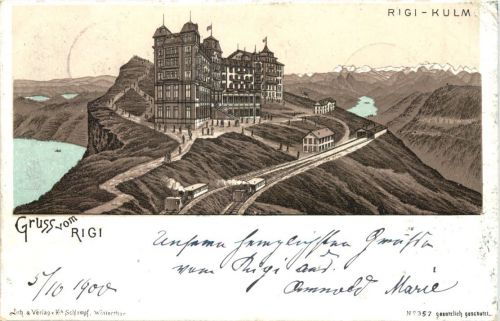 RIGI-KULM.
Gruss vom
RIGI
Unsere herzlichsten Grüsse
vom Rigi aus.
5/10 1900
Arnold Marie
Lith. & Verlag v. Hch. Schlumpf, Winterthur
No 357 gesetzlich geschützt.